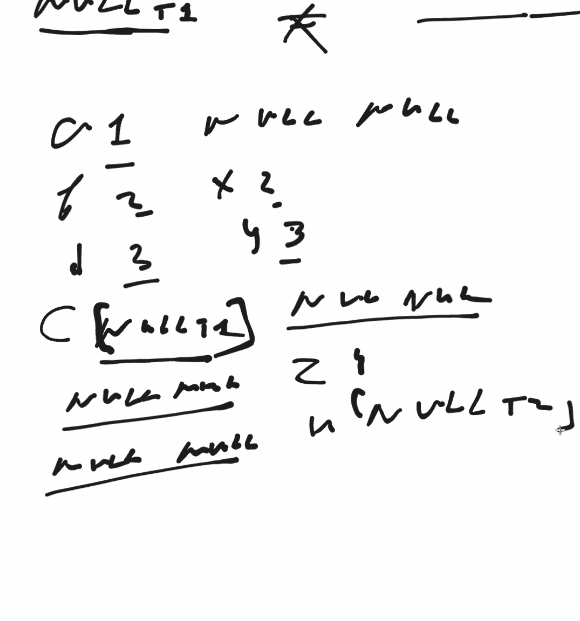 NULL T1
a 1 NULL NULL
b 2 x 2
d 3 y 3
C [NULL T1] NULL NULL
NULL NULL z 4
NULL NULL n [NULL T2]